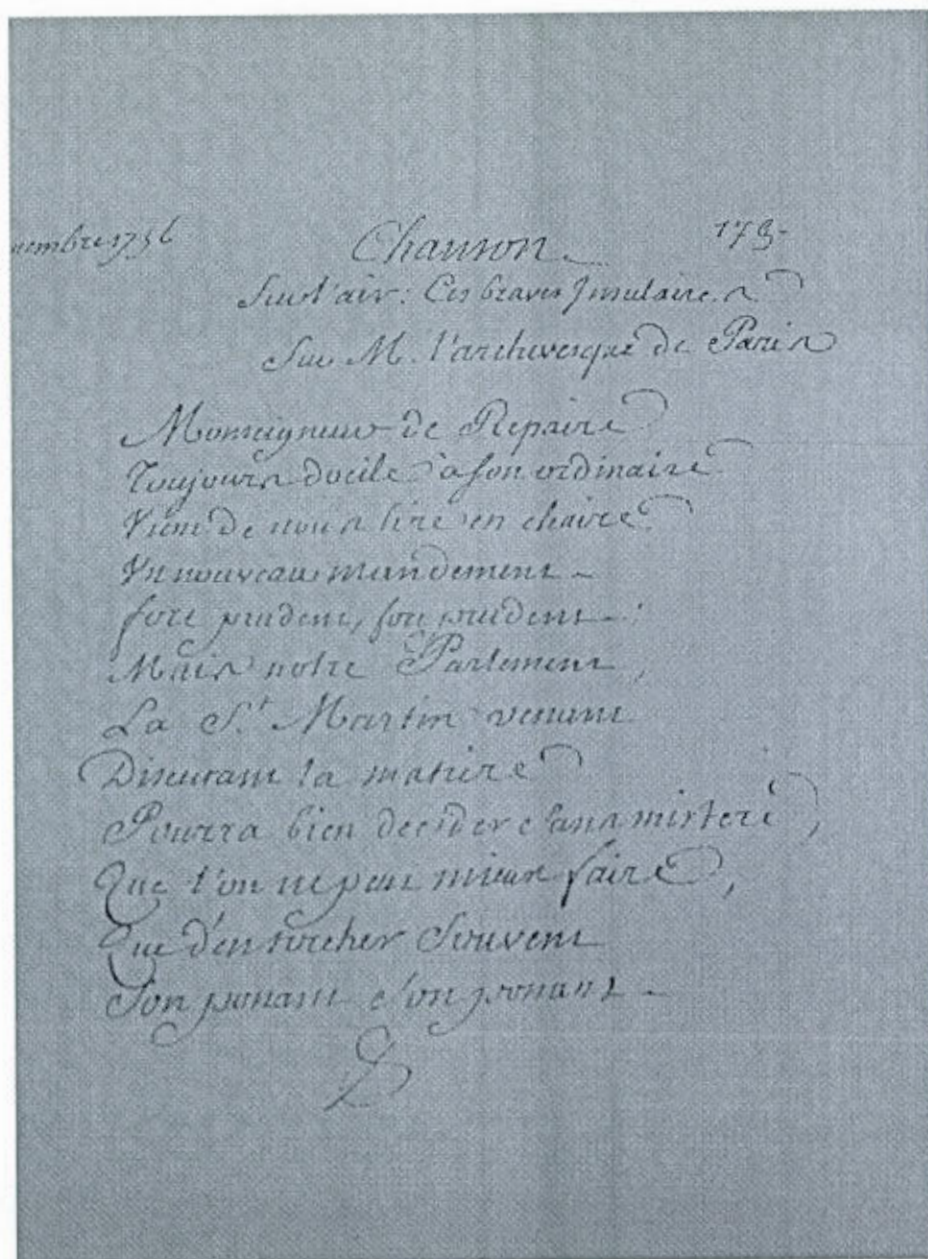 nembre 1756
Chanson 173-
Sur l'air: Ces braves Insulaires
Sur M. l'archevesque de Paris
Monseigneur de Repaire
Toujours docile à son ordinaire
Vient de nous lire en chaire
Un nouveau mandement -
fort prudent, fort prudent -
Mais notre Parlement,
La St. Martin venant
Discutant la matiere
Pourra bien decider sans mistere,
Que l'on ne peut mieux faire,
Que d'en torcher souvent
Son ponant son ponant -